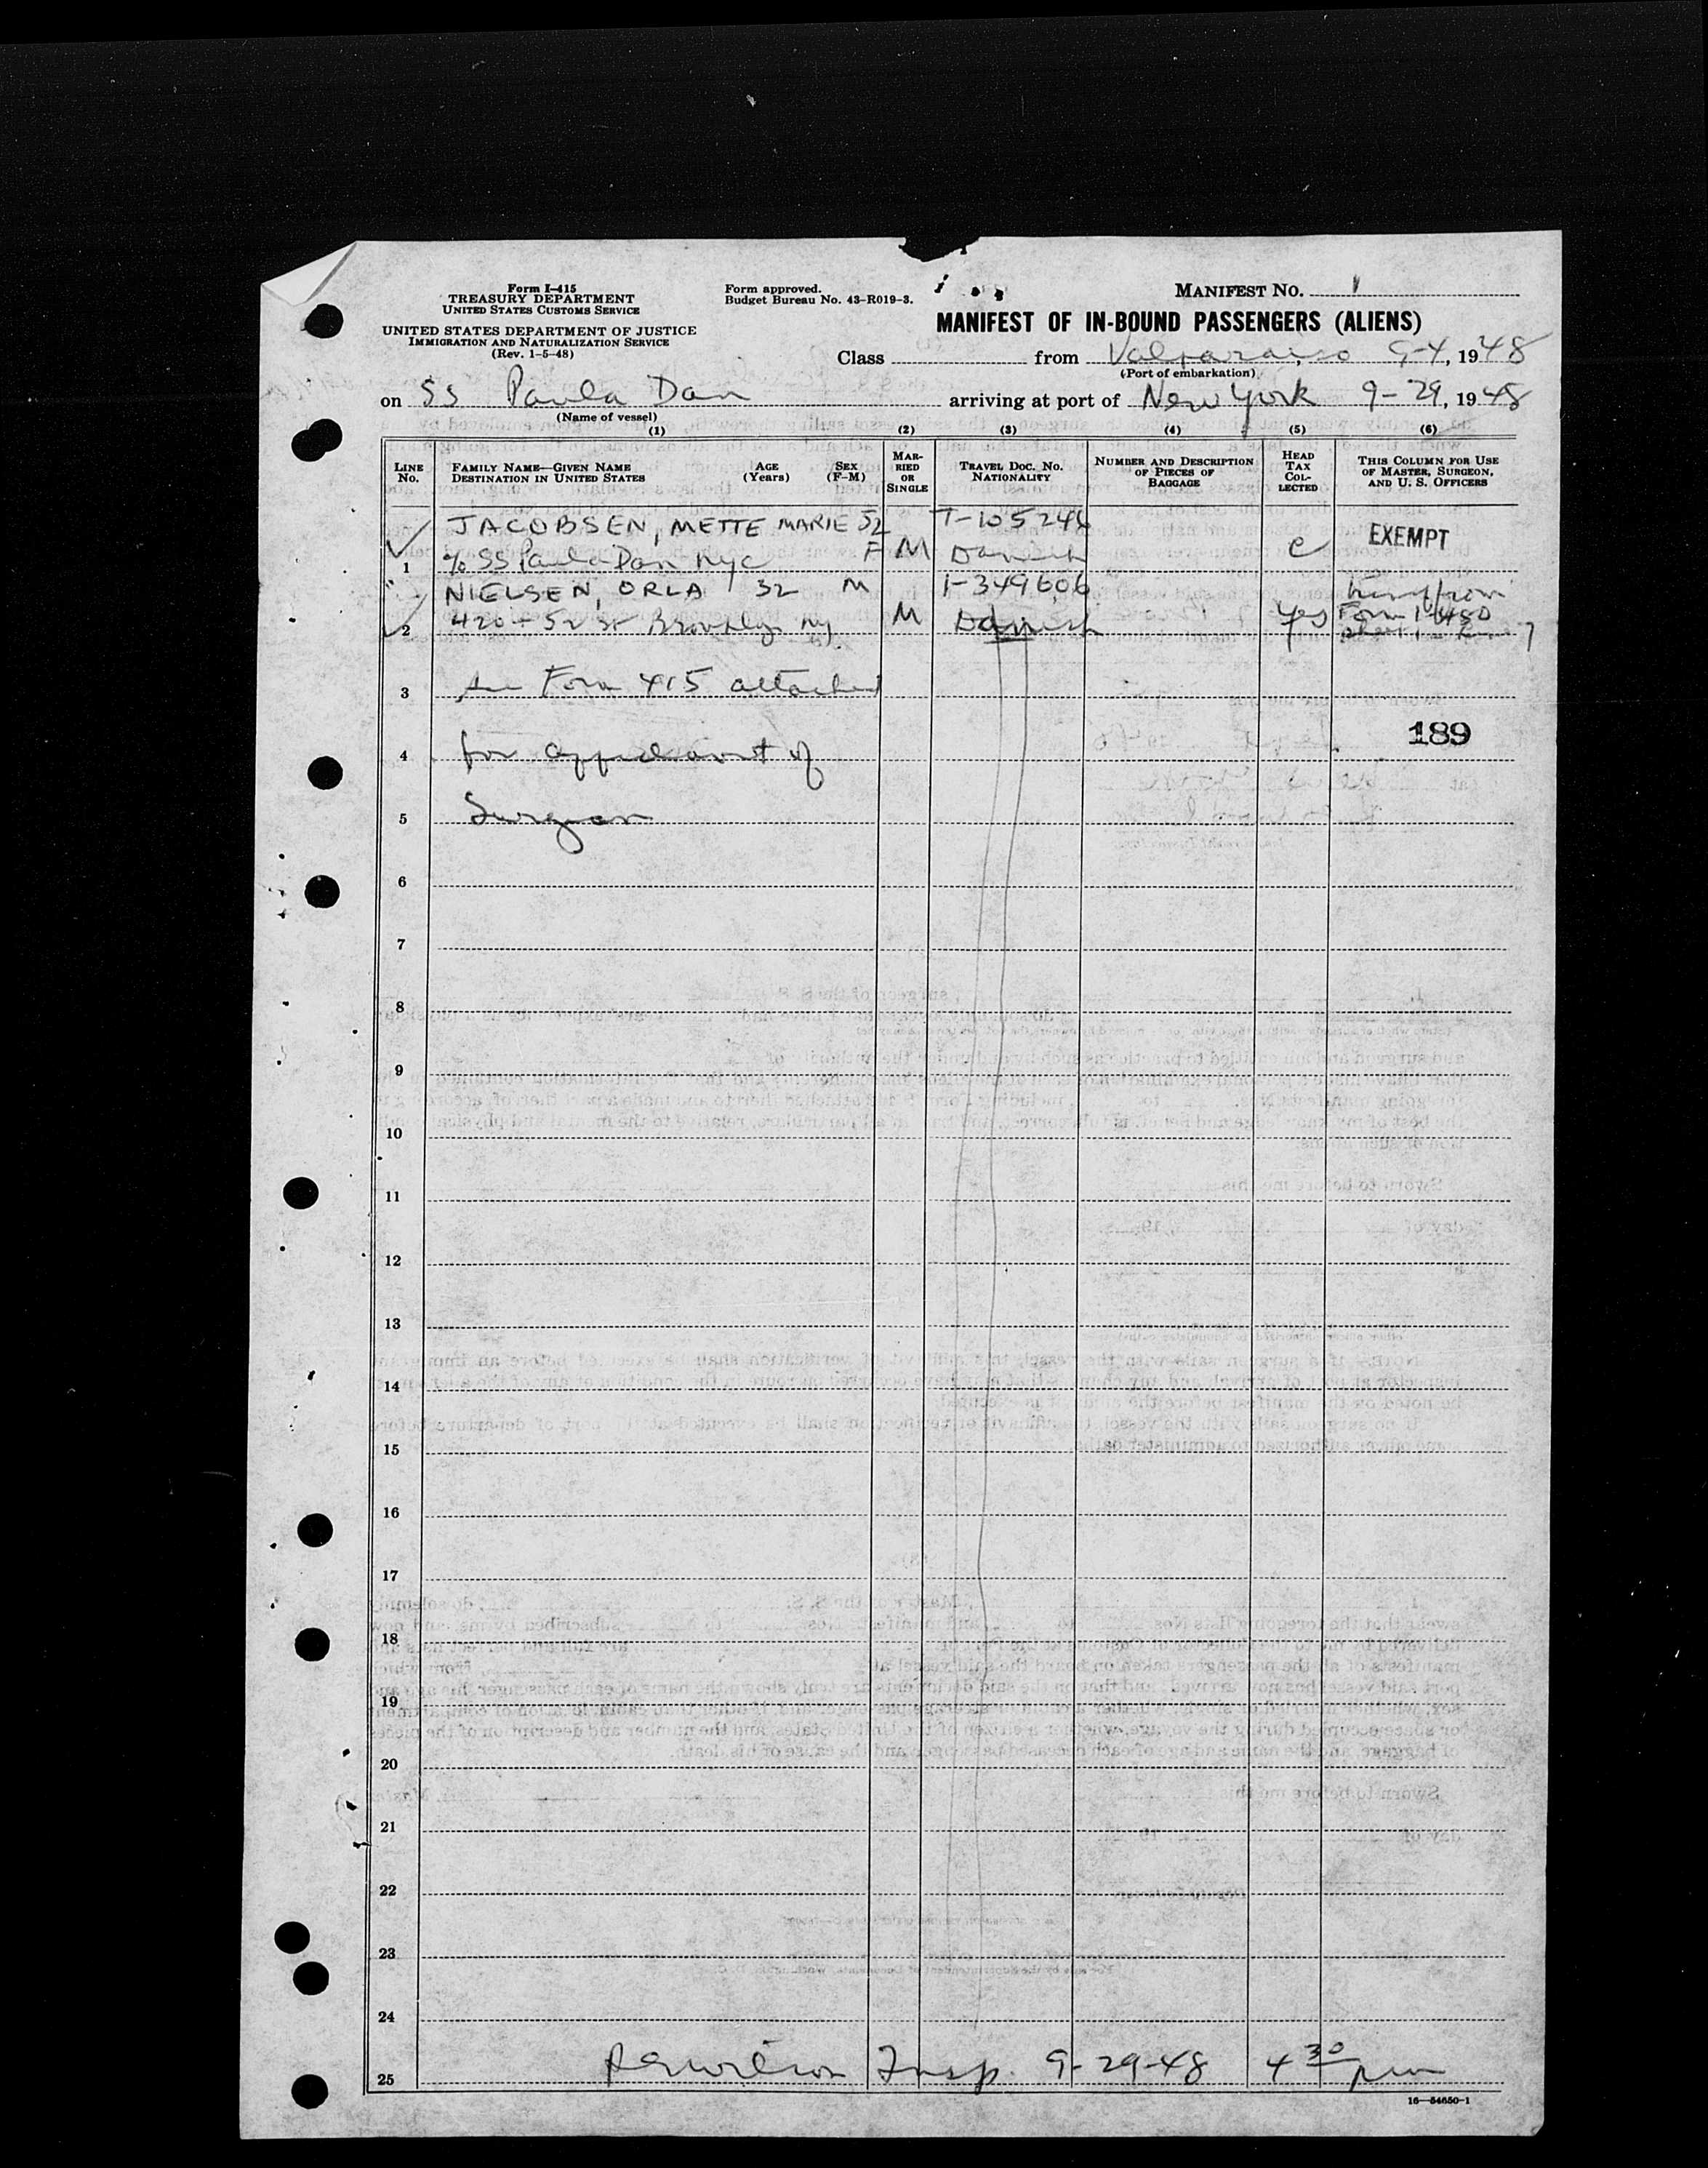 Form I-415
TREASURY DEPARTMENT
UNITED STATES CUSTOMS SERVICE
UNITED STATES DEPARTMENT OF JUSTICE
IMMIGRATION AND NATURALIZATION SERVICE
(Rev. 1-5-48)
Form approved.
Budget Bureau No. 43-R019-3.
MANIFEST NO. 1
MANIFEST OF IN-BOUND PASSENGERS (ALIENS)
Class from Valparaiso 9-4, 1948
(Port of embarkation)
on SS Paula Dan arriving at port of New York 9-29, 1948
(Name of vessel)
(1) (2) (3) (4) (5) (6)
LINE No. FAMILY NAME—GIVEN NAME DESTINATION IN UNITED STATES AGE (Years) SEX (F-M) MARRIED OR SINGLE TRAVEL DOC. NO. NATIONALITY NUMBER AND DESCRIPTION OF PIECES OF BAGGAGE HEAD TAX COLLECTED THIS COLUMN FOR USE OF MASTER, SURGEON, AND U. S. OFFICERS
JACOBSEN, METTE MARIE 52 T-105246
1 % SS Paula Dan NYC F M Danish e EXEMPT
NIELSEN, ORLA 32 M 1-349606
2 420-52 St Brooklyn NY M Danish Yes Form
3 See Form 415 attached
189
4 for affidavit of
5 Surgeon
6
7
8
9
10
11
12
13
14
15
16
17
18
19
20
21
22
23
24
25 Insp. 9-29-48 4 30 pm
16—54650-1